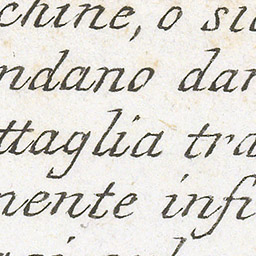 chine, o su
ndano dar
ttaglia tra
nente infi